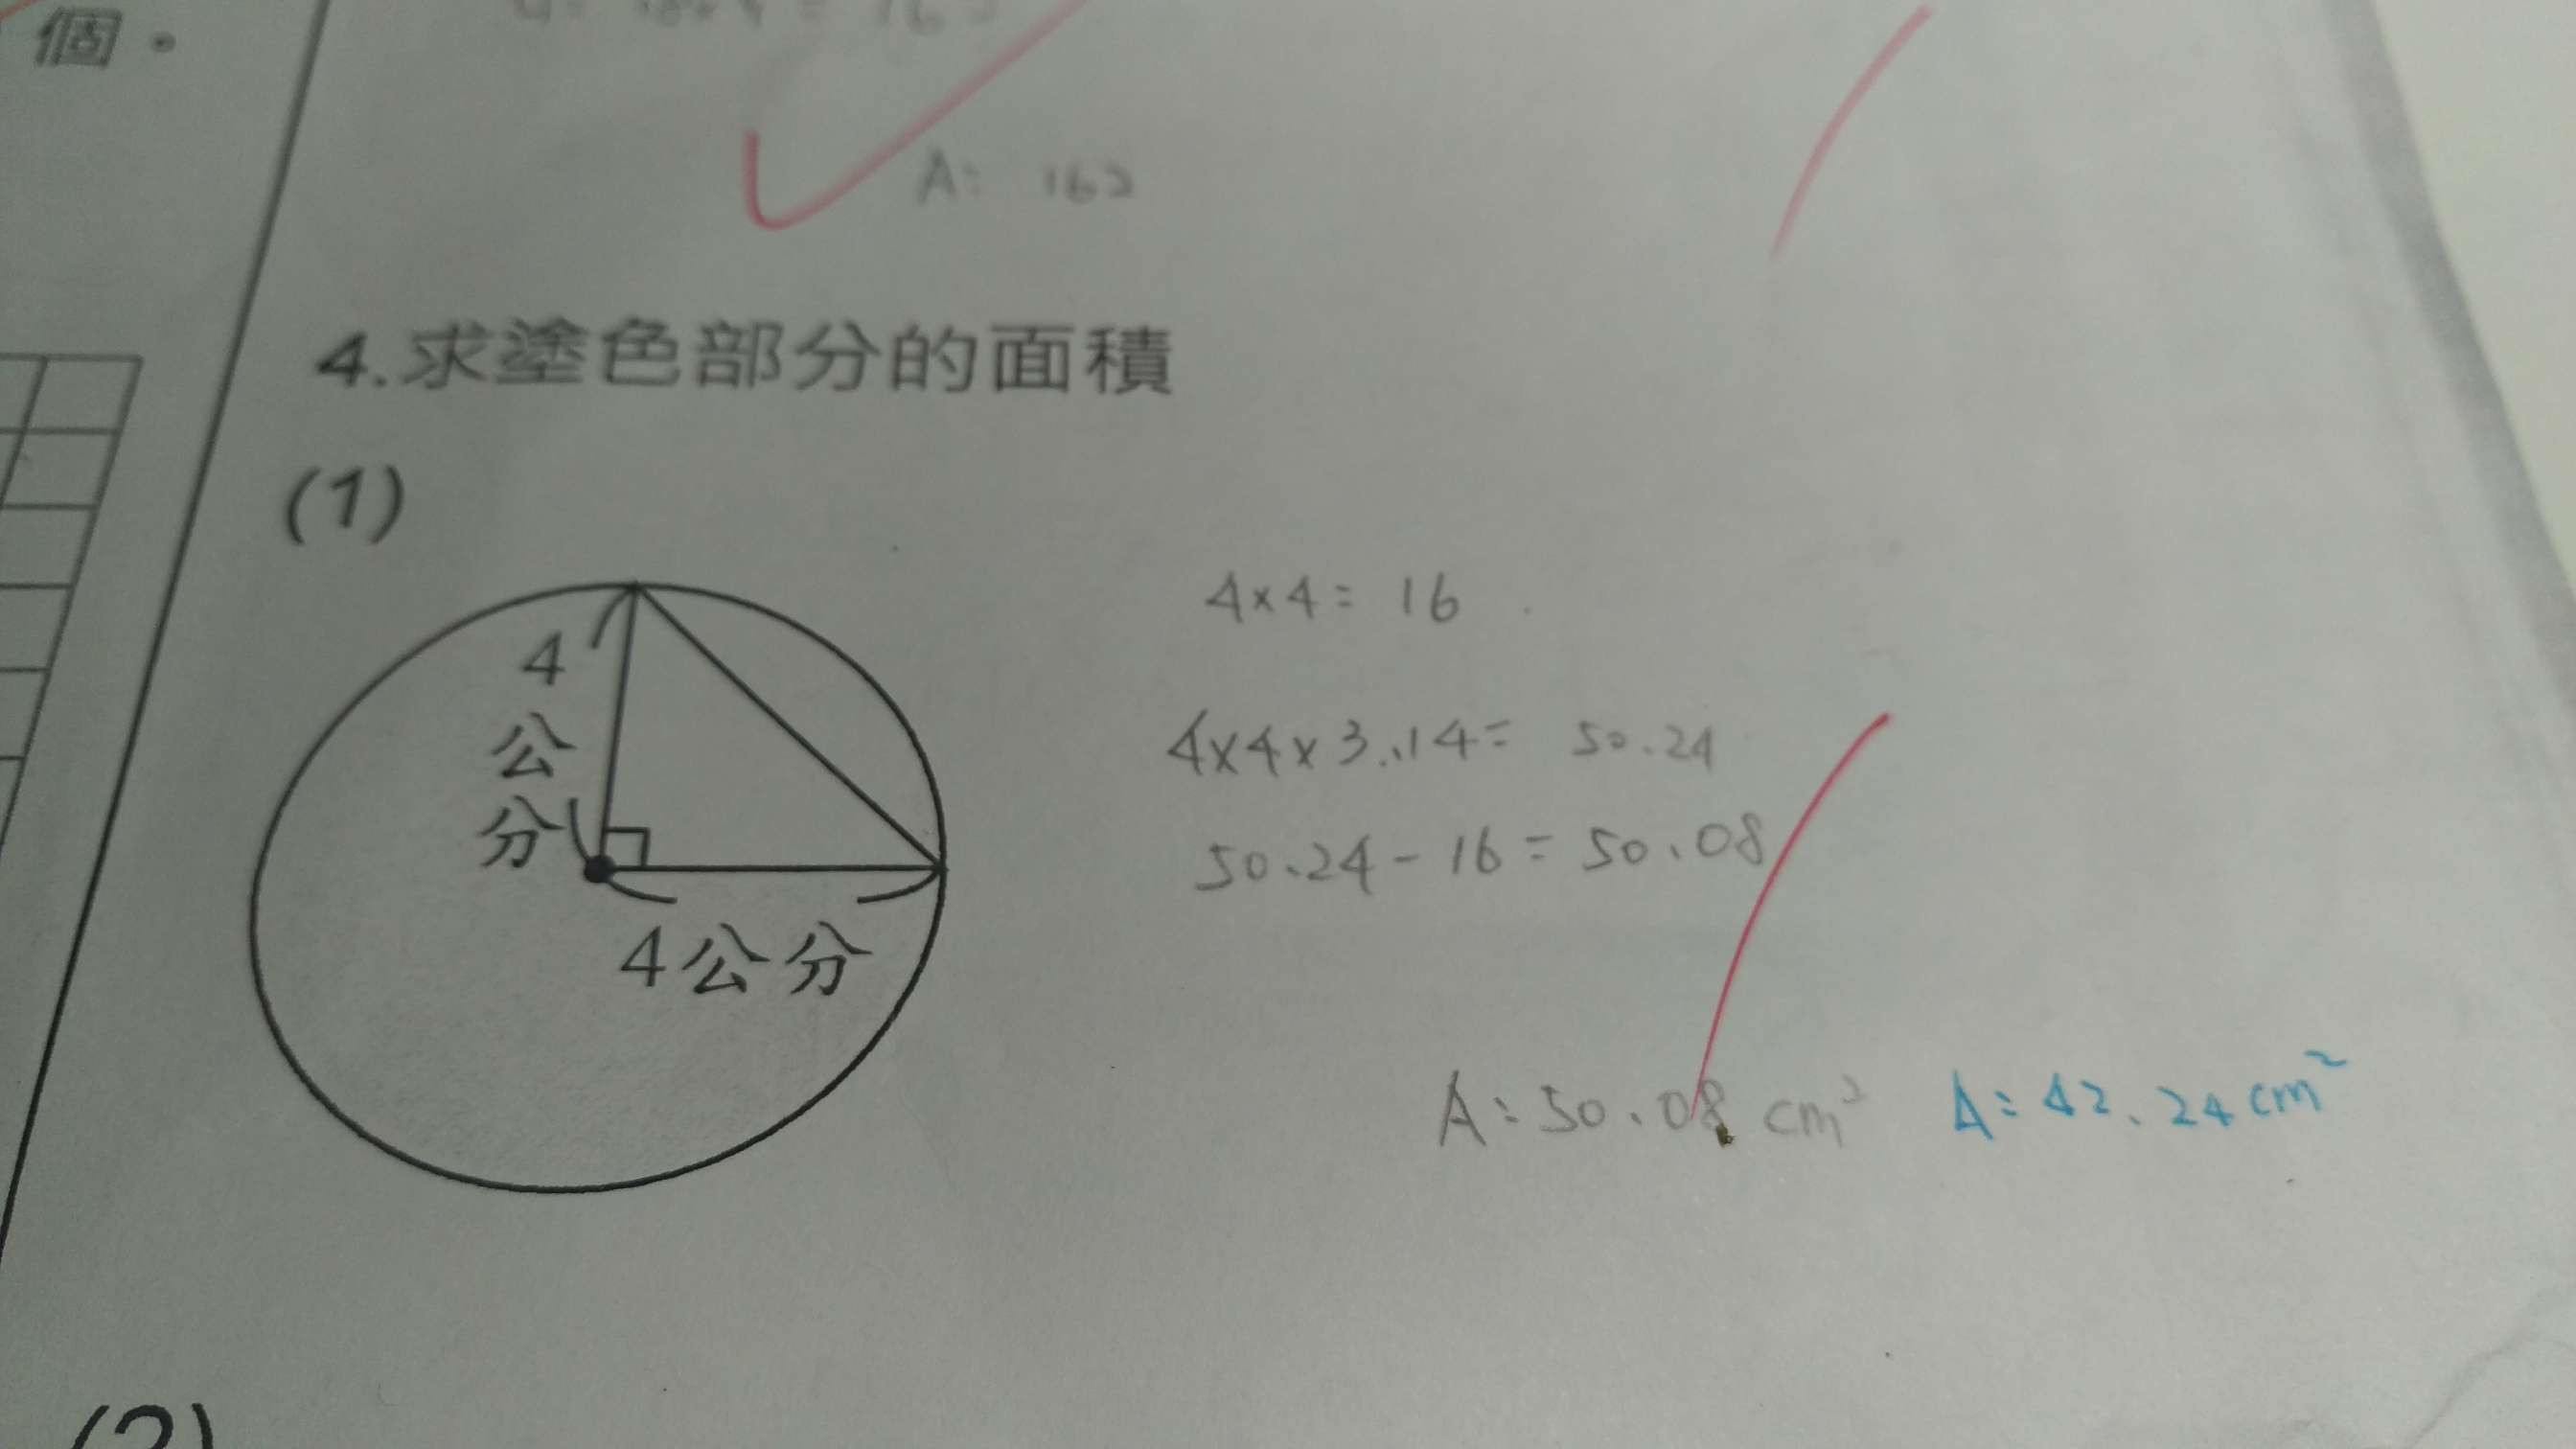 個。
A: 162
4.求塗色部分的面積
(1)
4公分
4公分
4×4= 16
4×4×3.14= 50.24
50.24-16=50.08
A:50.08 cm²
A:42.24cm²
(2)